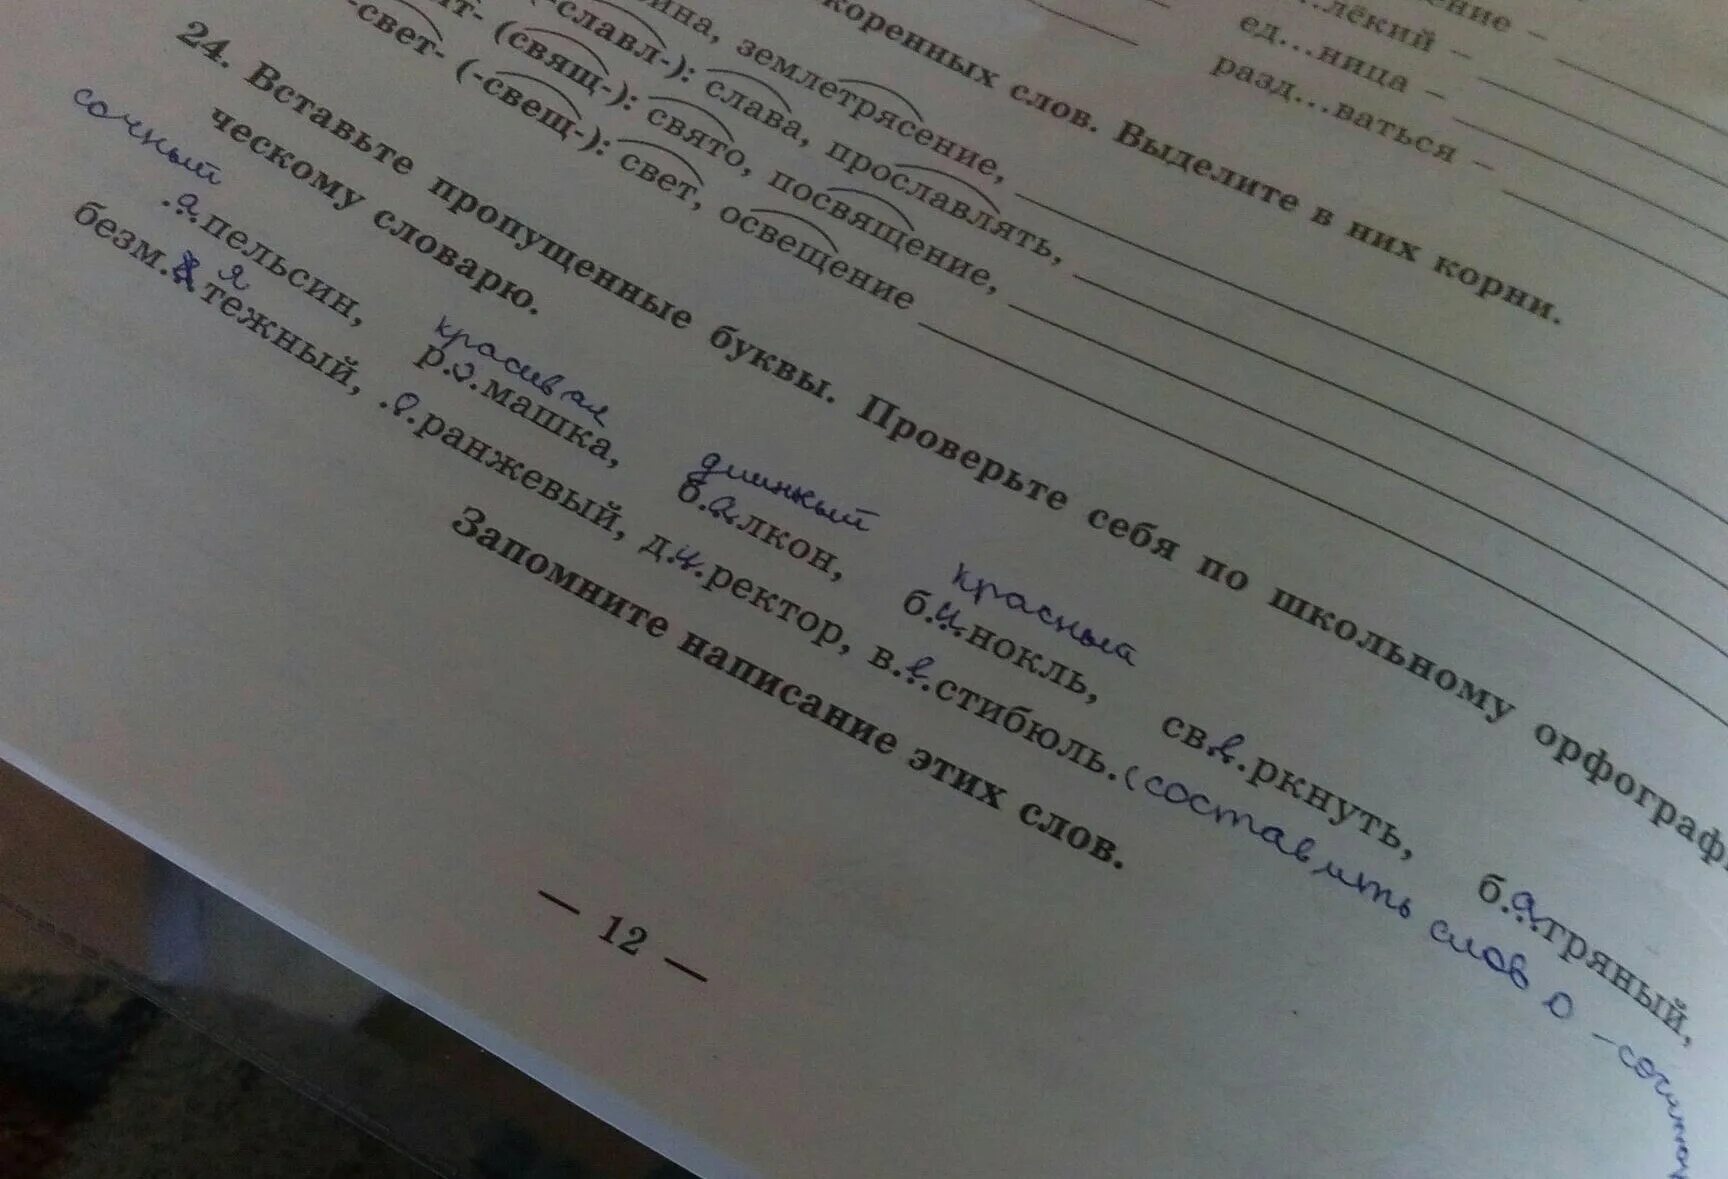 ...ение –
...лёкий –
ед...ница –
разд...ваться –
коренных слов. Выделите в них корни.
землетрясение,
-славл-): слава, прославлять,
(свящ-): свято, посвящение,
-свет- (-свещ-): свет, освещение
24. Вставьте пропущенные буквы. Проверьте себя по школьному орфографи
ческому словарю.
сочный красивая длинный красный
.а.пельсин, р.о.машка, б.а.лкон, б.и.нокль, св.е.ркнуть, б.а.тряный,
безм.я тежный, .о.ранжевый, д.и.ректор, в.е.стибюль. (составить слов о
Запомните написание этих слов.
— 12 —